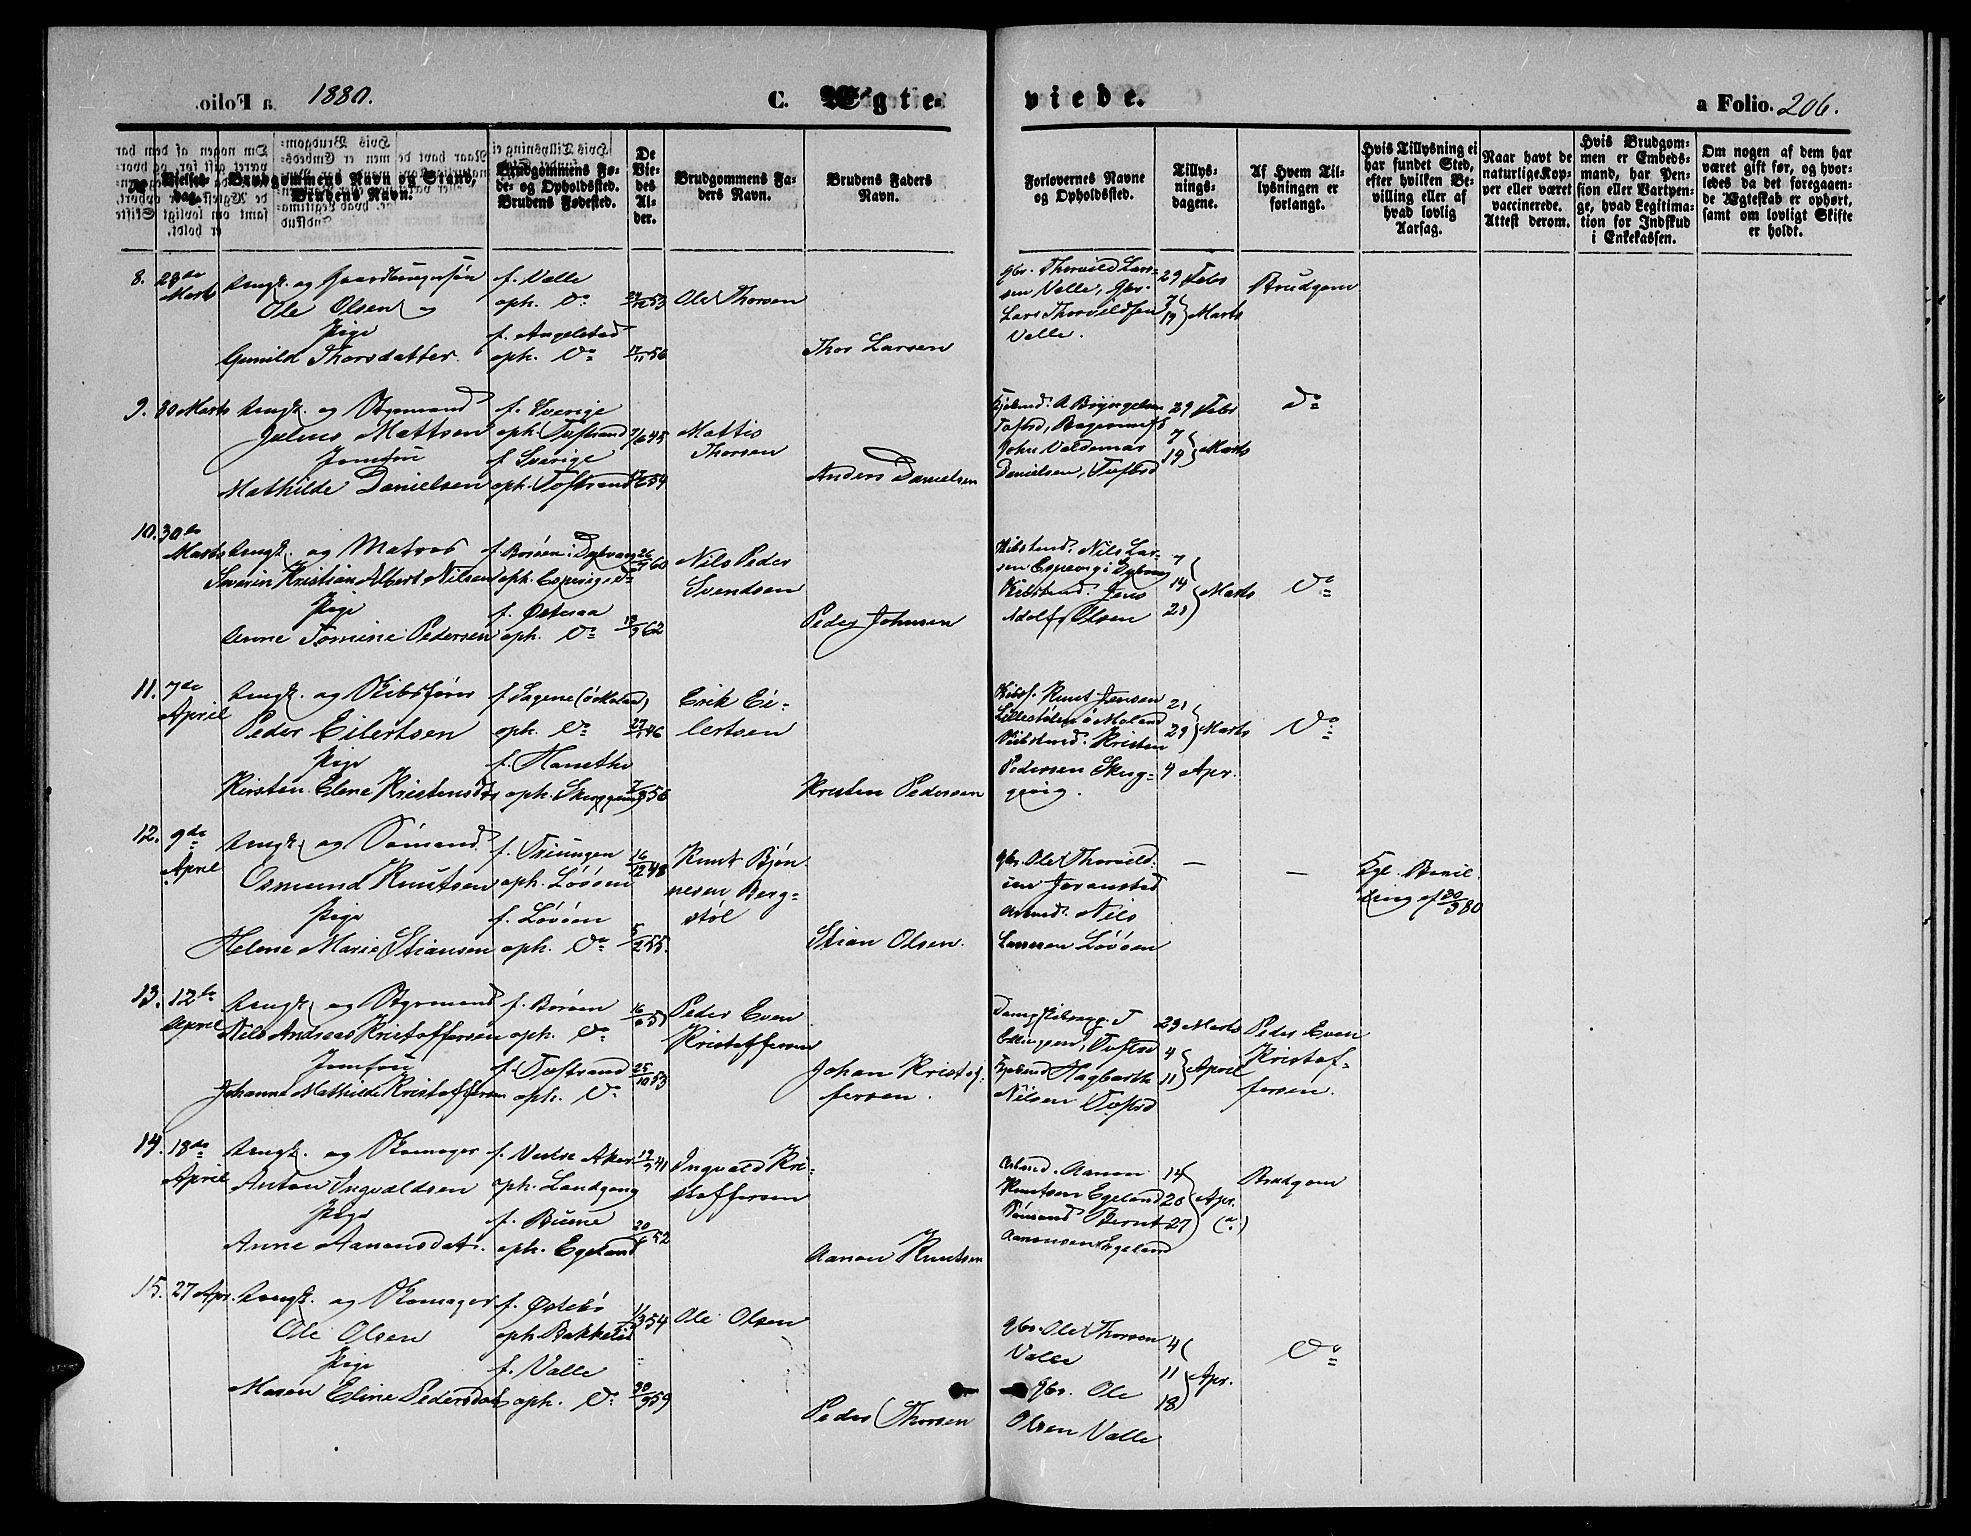 1880.
C. Ægte-
viede.
a Folio. 206.
No
Vielses-
dag.
Brudgommens Navn og Stand,
Brudens Navn.
Brudgommens Fø-
de- og Opholdssted.
Brudens Fødested.
De
Vie-
des
Al-
der.
Brudgommens Fa-
ders Navn.
Brudens Faders
Navn.
Forlovernes Navne
og Opholdssted.
Tillys-
nings-
dagene.
Af Hvem Til-
lysningen er
forlangt.
Hvis Tillysning ei
har fundet Sted,
efter hvilken Be-
villing eller af
hvad lovlig
Aarsag.
Naar havt de
naturlige Kop-
per eller været
vaccinerede.
Attest derom.
Hvis Brudgom-
men er Embeds-
mand, har Pen-
sion eller Vartpen-
ge, hvad Legitima-
tion for Indskud
i Enkekassen.
Om nogen af dem har
været gift før, og hvor-
ledes da det foregaaen-
de Ægteskab er ophørt,
samt om lovligt Skifte
er holdt.
8. 28de Marts
Ungk. og Gaardbrugersøn
Ole Olsen og
Pige
Gunild Thorsdatter.
f. Valle
oph. do
f. Angelstad
oph. do
Ole Thorsen
Thor Larsen
gbr. Thorvild Lar-
sen Valle, gbr.
Lars Thorvildsen
Valle.
29 Febr
7
19 Marts
Brudgom
9. 30 Marts
Ungk. og Styrmand
Julius Mattsen
Jomfru
Mathilde Danielsen
f. Sverige
oph. Tvestrand
f. Sverige
oph. Tvestrand
Mattis
Thorsen
Anders Danielsen
John Valdemar
Danielsen, Tvestrd
29 Febr
7
14 Marts
do
10. 30te Marts
Ungk. og Matros
Severin Kristian Albert Nilsen
Pige
Anne Tomine Pedersen
f. Borøen i Dybvaag
oph. Espevig i do
f. Østeraa
oph. do
26/9 60
Nils Peder
Svendsen
Peder Johnsen
Skibstmd. Nils Lar-
sen Espevig i Dybvaag
Skibstmd. Jens
Adolf Olsen
7
14
21 Marts
do
11. 7de April
Ungk. og Skibsfører
Peder Eilertsen
Pige
Kirsten Elene Kristensdtr
f. Sagene (ø Moland)
oph. do
f. Hanethv
oph. Skuggevig
Erik Ei-
lertsen
Kristen Pedersen
Skibsf. Knut Jensen
Lillestølen ø Moland
Skibstmd. Kristen
Pedersen Skug-
gevig.
21
29 Marts
4 Apr.
do
12. 9de April
Ungk. og Sømand
Osmund Knutsen
Pige
Helene Marie Stiansen
oph. Løvøen
f. Løvøen
oph. do
16/12 48
5/2 55.
Knut Bjøn-
nesen Berg-
støl
Stian Olsen.
gbr. Ole Thorvild-
sen Joranstad
Nils
Larssen Løvøen
—
—
Kgl. Bevil
ling af 20/3 80
13. 12te April
Ungk. og Styrmand
Nils Andreas Kristoffersen
Jomfru
Johanne Mathilde Kristoffersen
f. Borøen
oph. do
f. Tvestrand
oph. do
25/10 53
Peder Even
Kristoffersen
Johan Kristof-
fersen.
Ellingsen, Tvestrd
Hagbarth
Nilsen Tvestrd
29 Marts
4
11 April
Peder Even
Kristof-
fersen.
14. 18de April
Ungk. og Skomager
Anton Ingvaldsen
Pige
Anne Aanonsdat.
f. Vestre Aker
oph. Landgang
f. Buene
oph. Egeland
Ingvald Kri-
stoffersen
Aanon Knutsen
Aanon
Knutsen Egeland
Sømand Bernt
Aanonsen Egeland
14
20
27 Apr.
Brudgom
15. 27 Apr.
Ungk. og Skomager
Ole Olsen
Pige
Maren Eline Pedersdat
f. Østebø
oph. Bakkelid
f. Valle
oph. do
11/3 54
30/9 59
Ole Olsen
Peder Thorsen
gbr. Ole Thorsen
Valle
gbr. Ole
Olsen Valle
4
11
18 Apr.
do